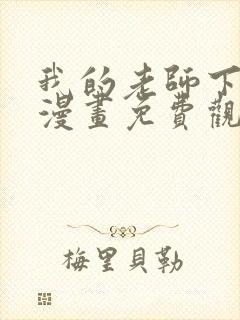 我的老師下
漫畫免費觀
梅里貝勒